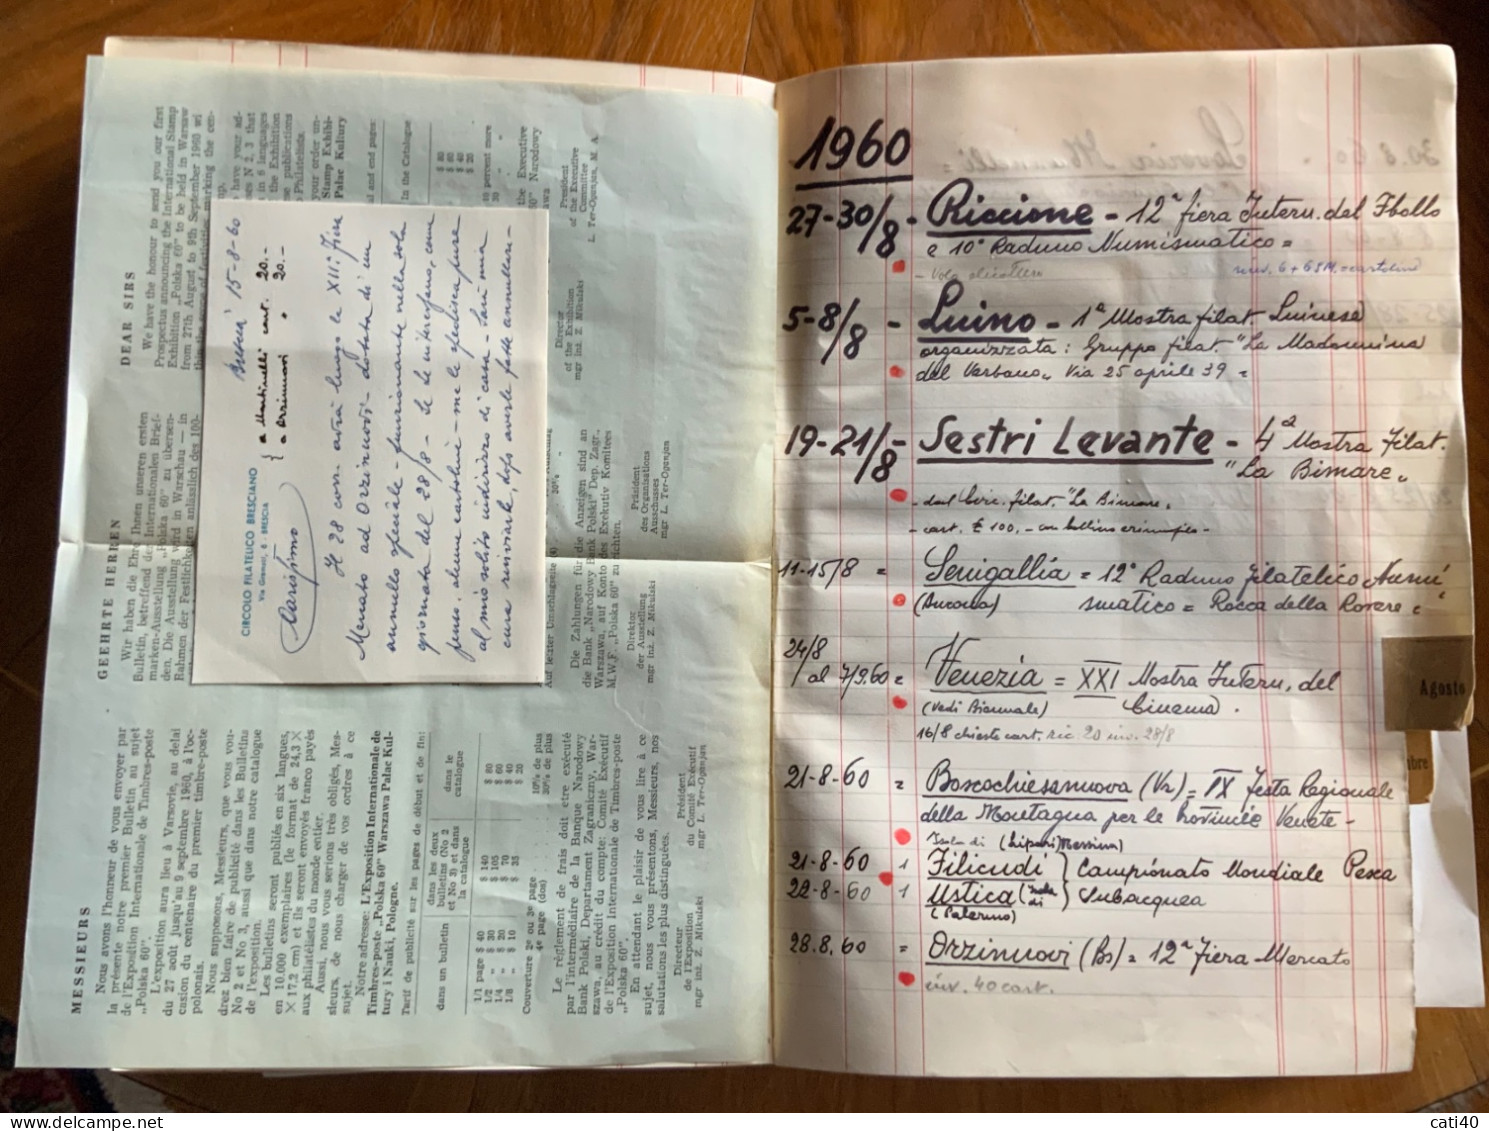 MESSIEURS
Nous avons l'honneur de vous envoyer par
la présente notre premier Bulletin au sujet
de l'Exposition Internationale de Timbres-poste
„Polska 60".
L'exposition aura lieu à Varsovie, au delai
du 27 août jusqu'au 9 septembre 1960, à l'oc-
casion du centenaire du premier timbre-poste
polonais.
Nous supposons, Messieurs, que vous vou-
drez bien faire de publicité dans les Bulletins
No 2 et No 3, aussi que dans notre catalogue
de l'exposition.
Les bulletins seront publiés en six langues,
en 10.000 exemplaires (le format de 24,3 ×
× 17,2 cm) et ils seront envoyés franco payés
aux philatélistes du monde entier.
Aussi, nous vous serions très obligés, Mes-
sieurs, de nous charger de vos ordres à ce
sujet.
Notre adresse: L'Exposition Internationale de
Timbres-poste „Polska 60" Warszawa Pałac Kul-
tury i Nauki, Pologne.
Tarif de publicité sur les pages de début et de fin:
dans un bulletin
dans les deux
bulletins (No 2
et No 3) et dans
la catalogue
dans le
catalogue
1/1 page $ 40 $ 140 $ 80
1/2 „ $ 30 $ 105 $ 60
1/4 „ $ 20 $ 70 $ 40
1/8 „ $ 10 $ 35 $ 20
Couverture 2e ou 3e page 10% de plus
4e page (dos) 30% de plus
Le règlement de frais doit être exécuté
par l'intermédiaire de la Banque Narodowy
Bank Polski, Departament Zagraniczny, War-
szawa, au crédit du compte: Comité Exécutif
de l'Exposition Internationale de Timbres-poste
„Polska 60".
En attendant le plaisir de vous lire à ce
sujet, nous vous présentons, Messieurs, nos
salutations les plus distinguées.
Directeur
de l'Exposition
mgr inż. Z. Mikulski
Président
du Comité Exécutif
mgr L. Ter-Oganjan
GEEHRTE HERREN
Wir haben die Ehre Ihnen unseren ersten
Bulletin, betreffend der Internationalen Brief-
marken-Ausstellung „Polska 60" zu übersen-
den. Die Ausstellung wird in Warschau — in
Rahmen der Festlichkeiten anlässlich des 100-
Auf letzter Umschlagseite (4) 30% „
Die Zahlungen für die Anzeigen sind an
die Bank „Narodowy Bank Polski" Dep. Zagr.,
Warszawa, auf Konto des Exekutiv Komitees
M.W.F. „Polska 60" zu richten.
Direktor
der Ausstellung
mgr inż. Z. Mikulski
Präsident
des Organisations
Ausschusses
mgr L. Ter-Oganjan
DEAR SIRS
We have the honour to send you our first
Prospectus announcing the International Stamp
Exhibition „Polska 60" to be held in Warsaw
from 27th August to 9th September 1960 wi
marking the cen-
have your ad-
es N 2, 3 that
in 6 languages
the Exhibition
se publications
Philatelists.
your order un-
Stamp Exhibi-
Pałac Kultury
and end pages:
In the Catalogue
$ 80
$ 60
$ 40
$ 20
10 percent more
30 „ „
the Executive
Narodowy
Director
of the Exhibition
mgr inż. Z. Mikulski
President
of the Executive
Committee
L. Ter-Oganjan, M. A.
CIRCOLO FILATELICO BRESCIANO
Via Gramsci, 6 - BRESCIA
Brescia 15-8-60
{ a Martinelli cart. 20.-
a Orzinuovi " 20.-
Carissimo
Il 28 corr. avrà luogo la XII. Fiera
Mercato ad Orzinuovi - dotata di un
annullo speciale - funzionante nella sola
giornata del 28/8 - Se le interessano, come
penso, alcune cartoline - me le spedisca pure
al mio solito indirizzo di casa - Sarà mia
cura rinviarle, dopo averle fatte annullari -
1960
27-30/8 - Riccione - 12ª fiera Intern. del Fbollo
e 10° Raduno Numismatico =
- Volo elicottero
5-8/8 - Luino - 1ª Mostra filat. Luinese
organizzata: Gruppo filat. "La Madonnina
del Verbano„ Via 25 aprile 39 =
19-21/8 - Sestri Levante - 4ª Mostra Filat.
"La Bimare„
- dal Circ. filat. "La Bimare„
- cart. £ 100, - con bollino erinnofilo -
11-15/8 = Senigallia = 12° Raduno Filatelico Numi
(Ancona) smatico = Rocca della Rovere =
24/8
al 7/9.60 = Venezia = XXI Mostra Intern. del
(Vedi Biennale) Cinema.
16/8 chieste cart. ric 20 inv. 28/8
21-8-60 = Boscochiesanuova (Vr) = IX Festa Regionale
della Montagna per le Provincie Venete -
Isola di (Lipari Messina)
21-8-60 Filicudi } Campionato Mondiale Pesca
22-8-60 Ustica (Isola di } Subacquea
(Palermo)
28.8.60 = Orzinuovi (Bs) = 12ª Fiera Mercato
inv. 40 cart.
Agosto
cati40